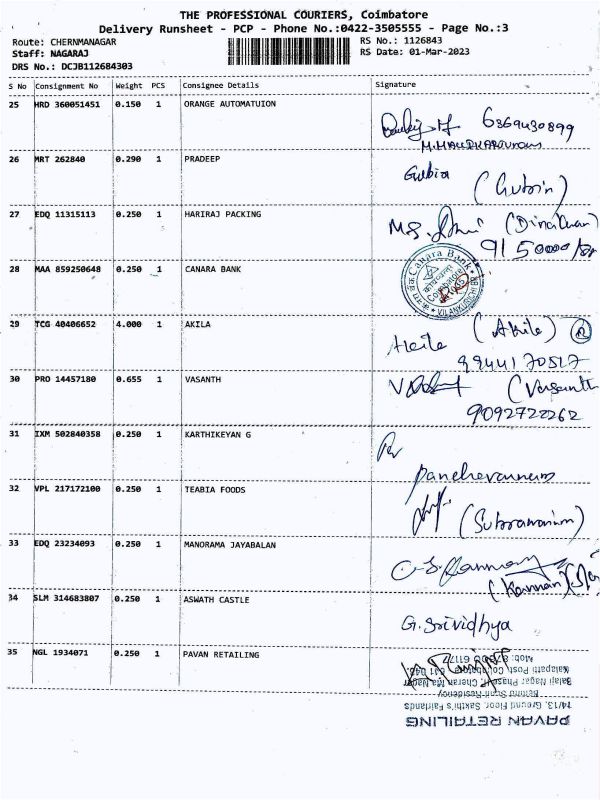 THE PROFESSIONAL COURIERS, Coimbatore
Delivery Runsheet - PCP - Phone No.:0422-3505555 - Page No.:3
Route: CHERNMANAGAR
RS No.: 1126843
Staff: NAGARAJ
RS Date: 01-Mar-2023
DRS No.: DCJB112684303
S No Consignment No Weight PCS Consignee Details Signature
25 HRD 360051451 0.150 1 ORANGE AUTOMATUION
6369430899
26 MRT 262840 0.290 1 PRADEEP
Gubia
27 EDQ 11315113 0.250 1 HARIRAJ PACKING
M.S.
28 MAA 859250648 0.250 1 CANARA BANK
Canara Bank
Coimbatore
29 TCG 40406652 4.000 1 AKILA
Akila (Akila)
9944170517
30 PRO 14457180 0.655 1 VASANTH
(Vasanth
9092722262
31 IXM 502840358 0.250 1 KARTHIKEYAN G
32 VPL 217172100 0.250 1 TEABIA FOODS
33 EDQ 23234093 0.250 1 MANORAMA JAYABALAN
(Kannan)
34 SLM 314683807 0.250 1 ASWATH CASTLE
G. Srividhya
35 NGL 1934071 0.250 1 PAVAN RETAILING
PAVAN RETAILING
14/13, Ground Floor, Sakthi's Fairlands